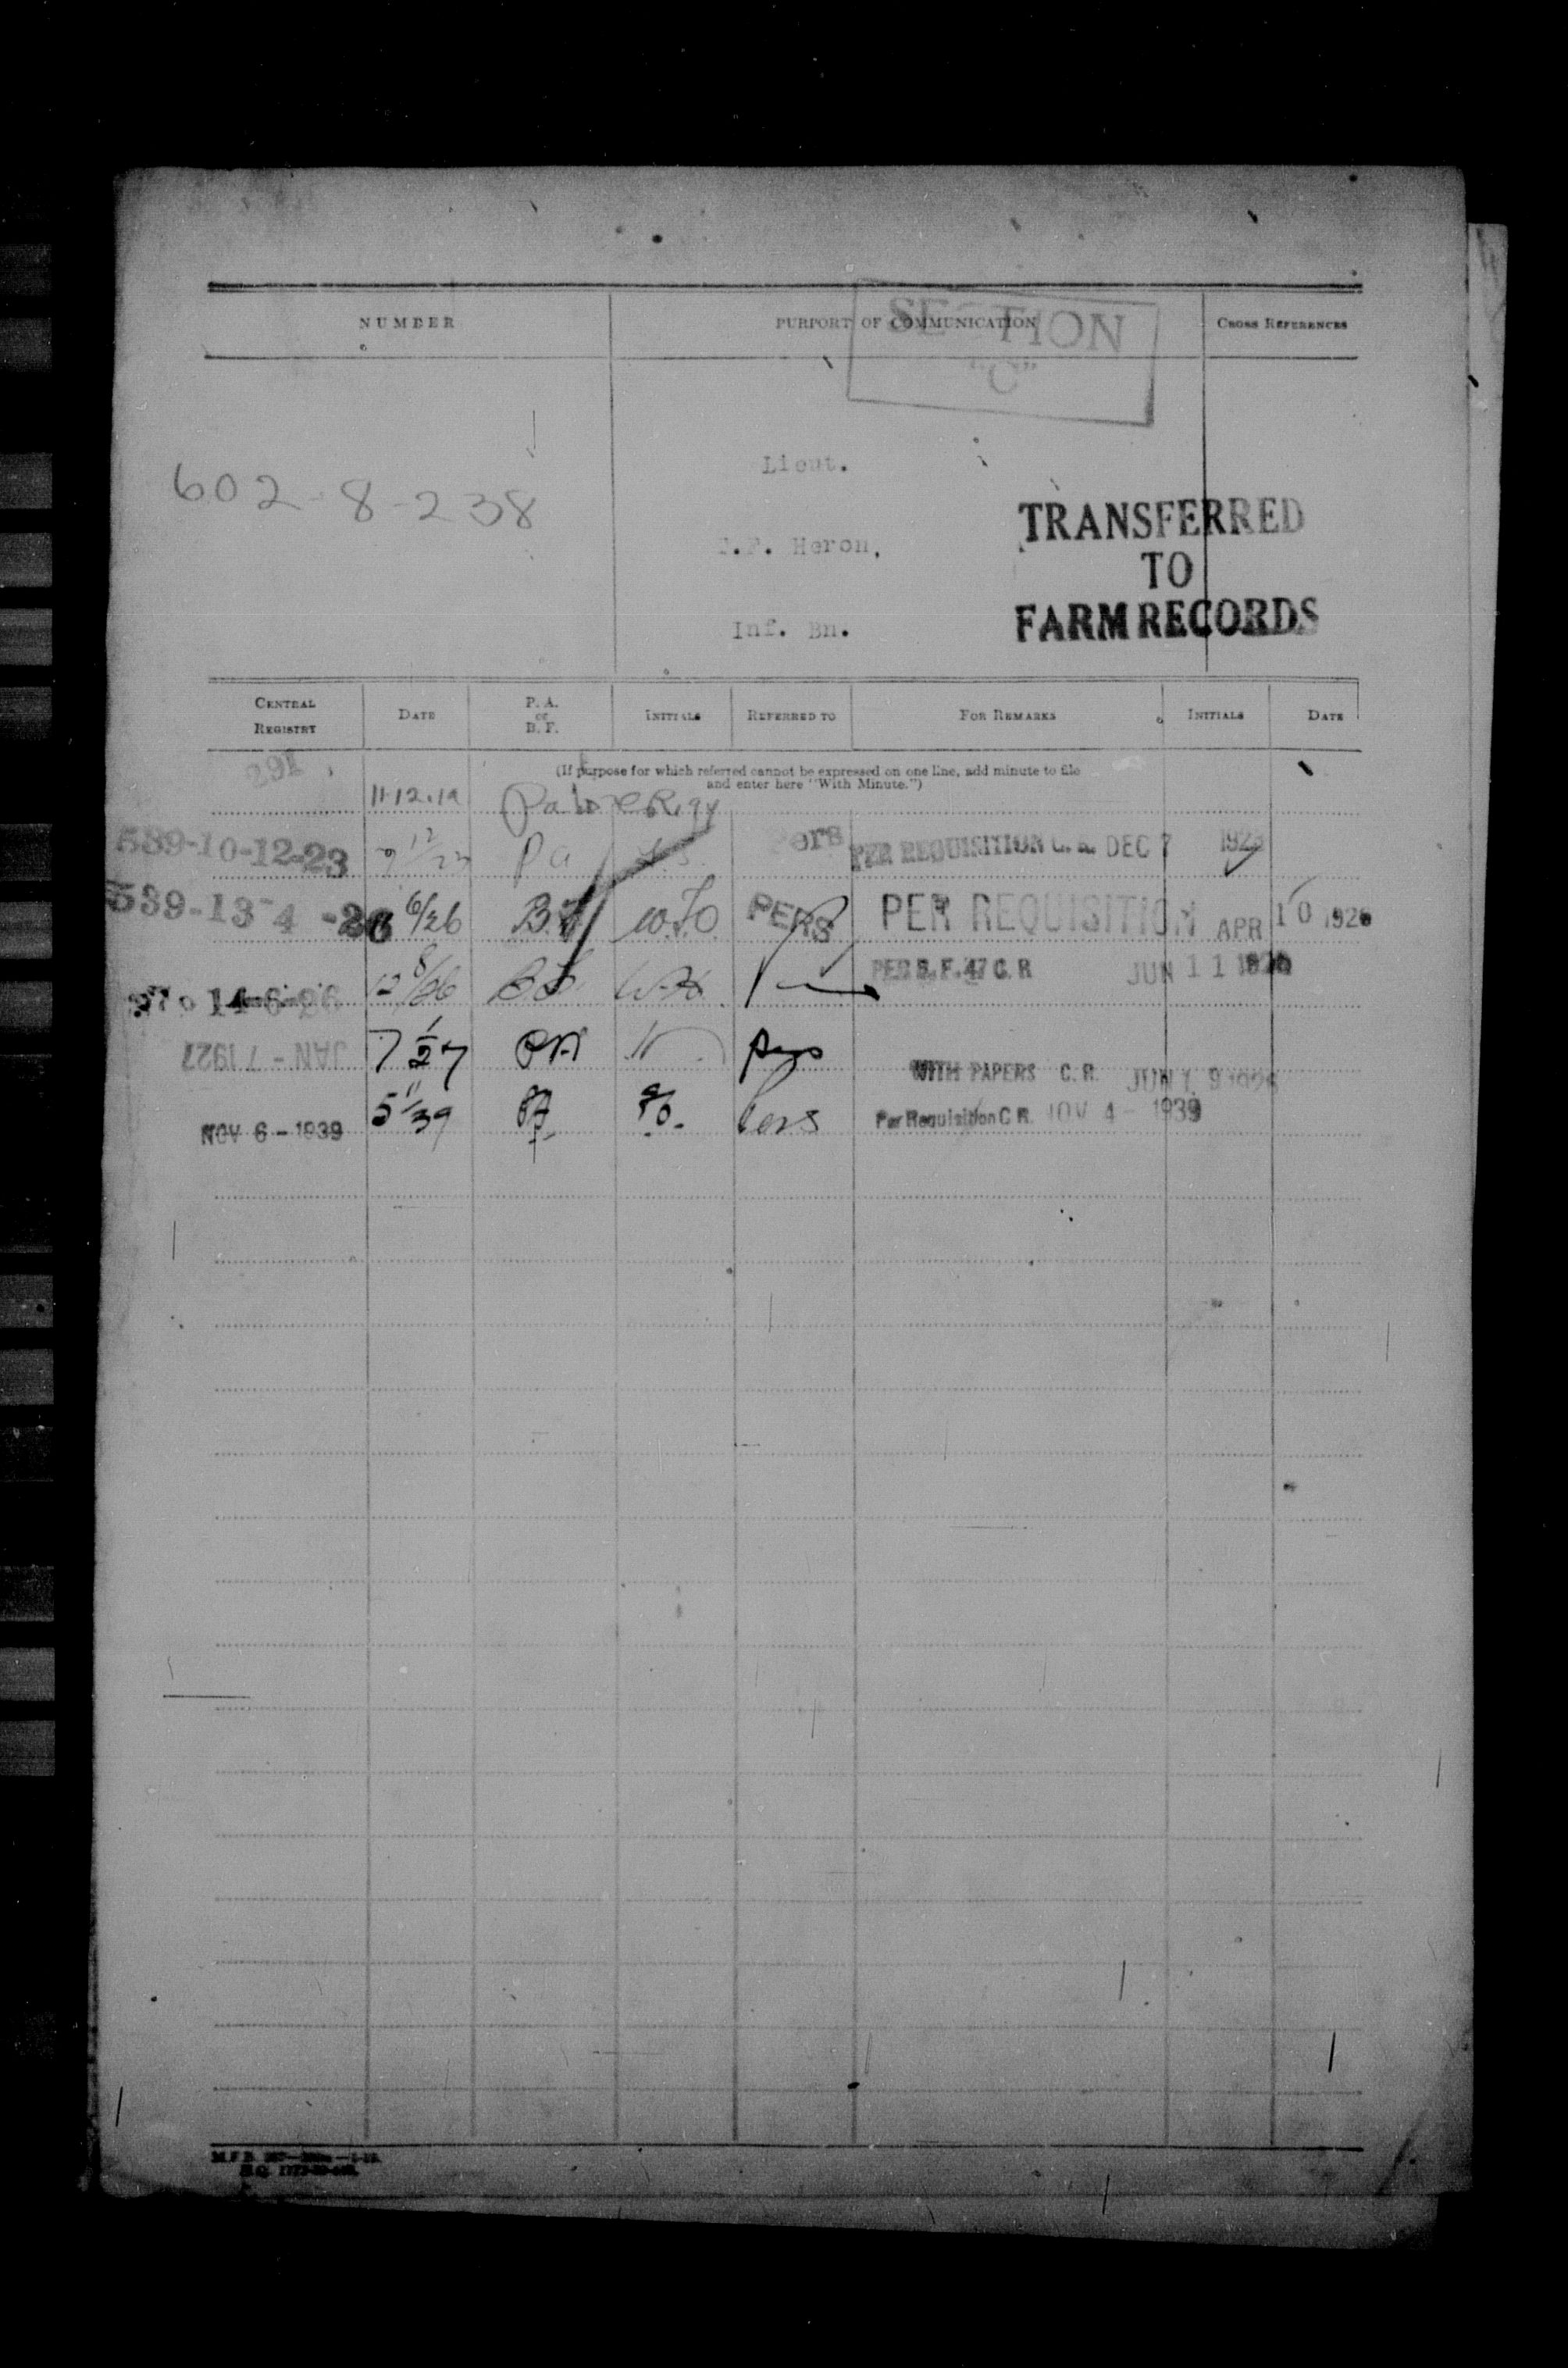 NUMBER PURPORT OF COMMUNICATION CROSS REFERENCES
SECTION
"C"
602-8-238
Lieut.
Heron,
Inf. Bn.
TRANSFERRED
TO
FARM RECORDS
CENTRAL REGISTRY DATE P. A. or B. F. INITIALS REFERRED TO FOR REMARKS INITIALS DATE
(If purpose for which referred cannot be expressed on one line, add minute to file
and enter here "With Minute.")
11.12.19
589-10-12-23 Pa Pers PER REQUISITION C. R. DEC 7 1923
539-13-4-26 6/26 B.F. PERS PER REQUISITION APR 10 1926
14-6-26 12 8/26 PER B. F. 47 C. R JUN 11 1926
JAN - 7 1927 7 1/27 WITH PAPERS C. R.
NOV 6 - 1939 5 11/39 Pers Per Requisition C R. NOV 4 - 1939